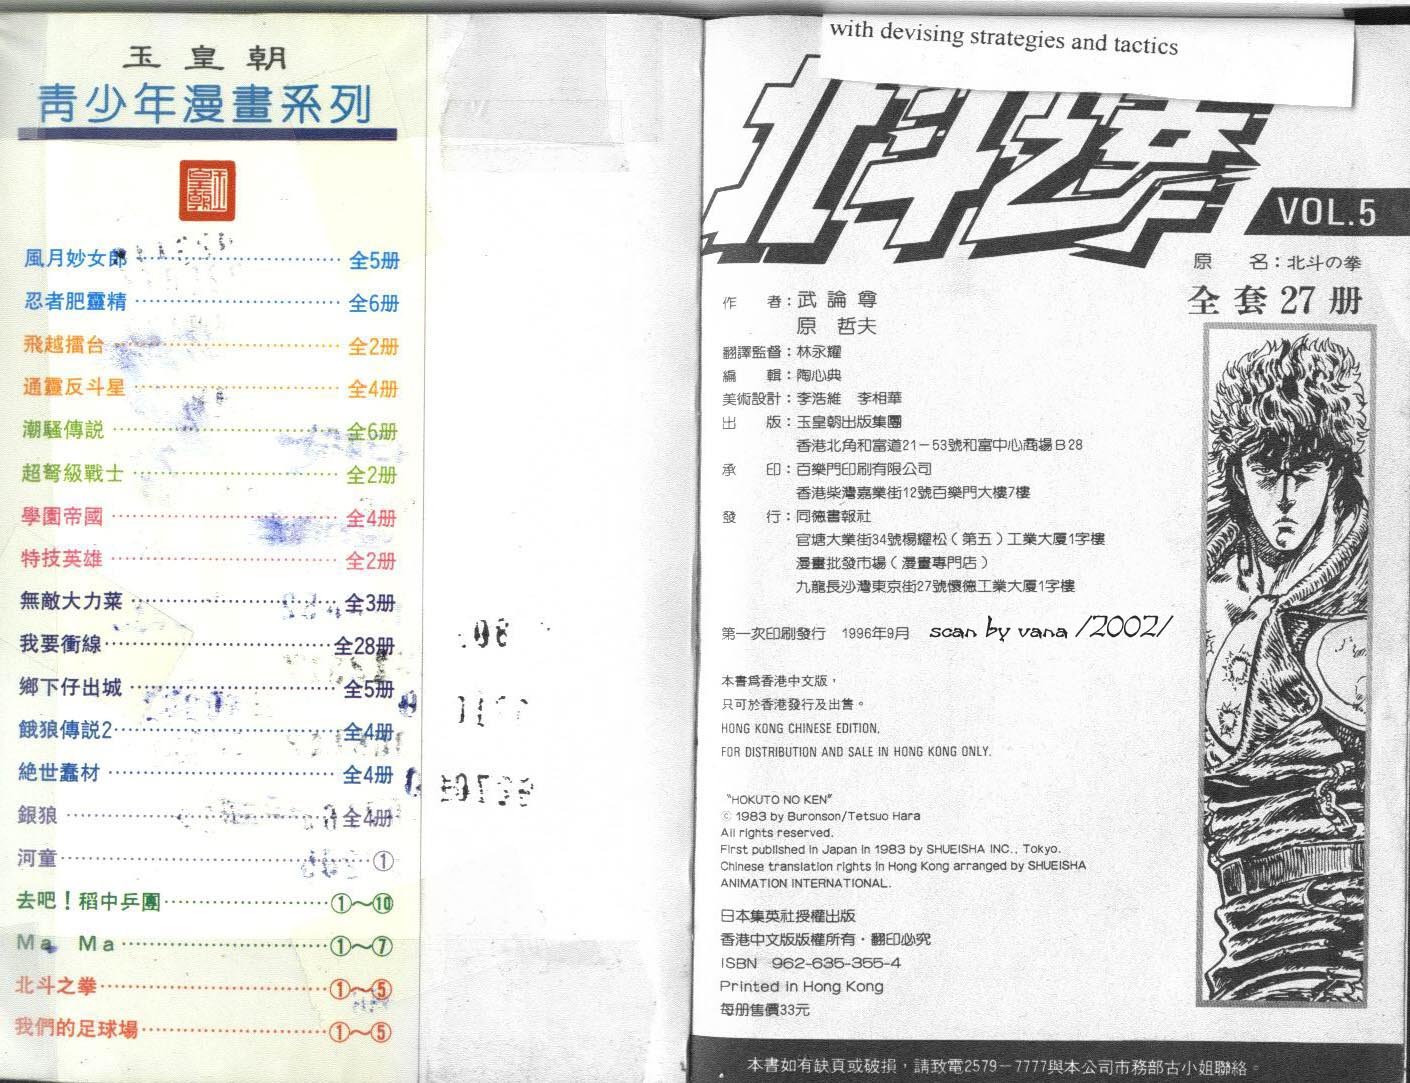 玉皇朝
青少年漫畫系列
風月妙女郎 全5册
忍者肥靈精 全6册
飛越擂台 全2册
通靈反斗星 全4册
潮騷傳説 全6册
超弩級戰士 全2册
學園帝國 全4册
特技英雄 全2册
無敵大力菜 全3册
我要衝線 全28册
鄉下仔出城 全5册
餓狼傳説2 全4册
絕世蠢材 全4册
銀狼 全4册
河童 ①
去吧！稻中乒團 ①～⑩
Ma Ma ①～⑦
北斗之拳 ①～⑤
我們的足球場 ①～⑤
with devising strategies and tactics
北斗之拳
VOL.5
原 名：北斗の拳
全套27册
作 者：武論尊
原 哲夫
翻譯監督：林永耀
編 輯：陶心典
美術設計：李浩維 李相華
出 版：玉皇朝出版集團
香港北角和富道21－53號和富中心商場B28
承 印：百樂門印刷有限公司
香港柴灣嘉業街12號百樂門大樓7樓
發 行：同德書報社
官塘大業街34號楊耀松（第五）工業大廈1字樓
漫畫批發市場（漫畫專門店）
九龍長沙灣東京街27號懷德工業大廈1字樓
第一次印刷發行 1996年9月 scan by vana /2002/
本書爲香港中文版，
只可於香港發行及出售。
HONG KONG CHINESE EDITION,
FOR DISTRIBUTION AND SALE IN HONG KONG ONLY.
"HOKUTO NO KEN"
© 1983 by Buronson/Tetsuo Hara
All rights reserved.
First published in Japan in 1983 by SHUEISHA INC., Tokyo.
Chinese translation rights in Hong Kong arranged by SHUEISHA
ANIMATION INTERNATIONAL.
日本集英社授權出版
香港中文版版權所有・翻印必究
ISBN 962-635-355-4
Printed in Hong Kong
每册售價33元
本書如有缺頁或破損，請致電2579－7777與本公司市務部古小姐聯絡。